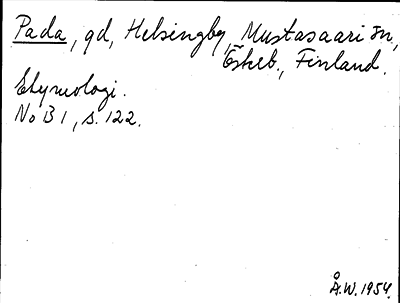 Pada, gd, Helsingby, Mustasaari sn,
Österb., Finland.
Etymologi.
No B 1, s. 122.
Å.W. 1954.